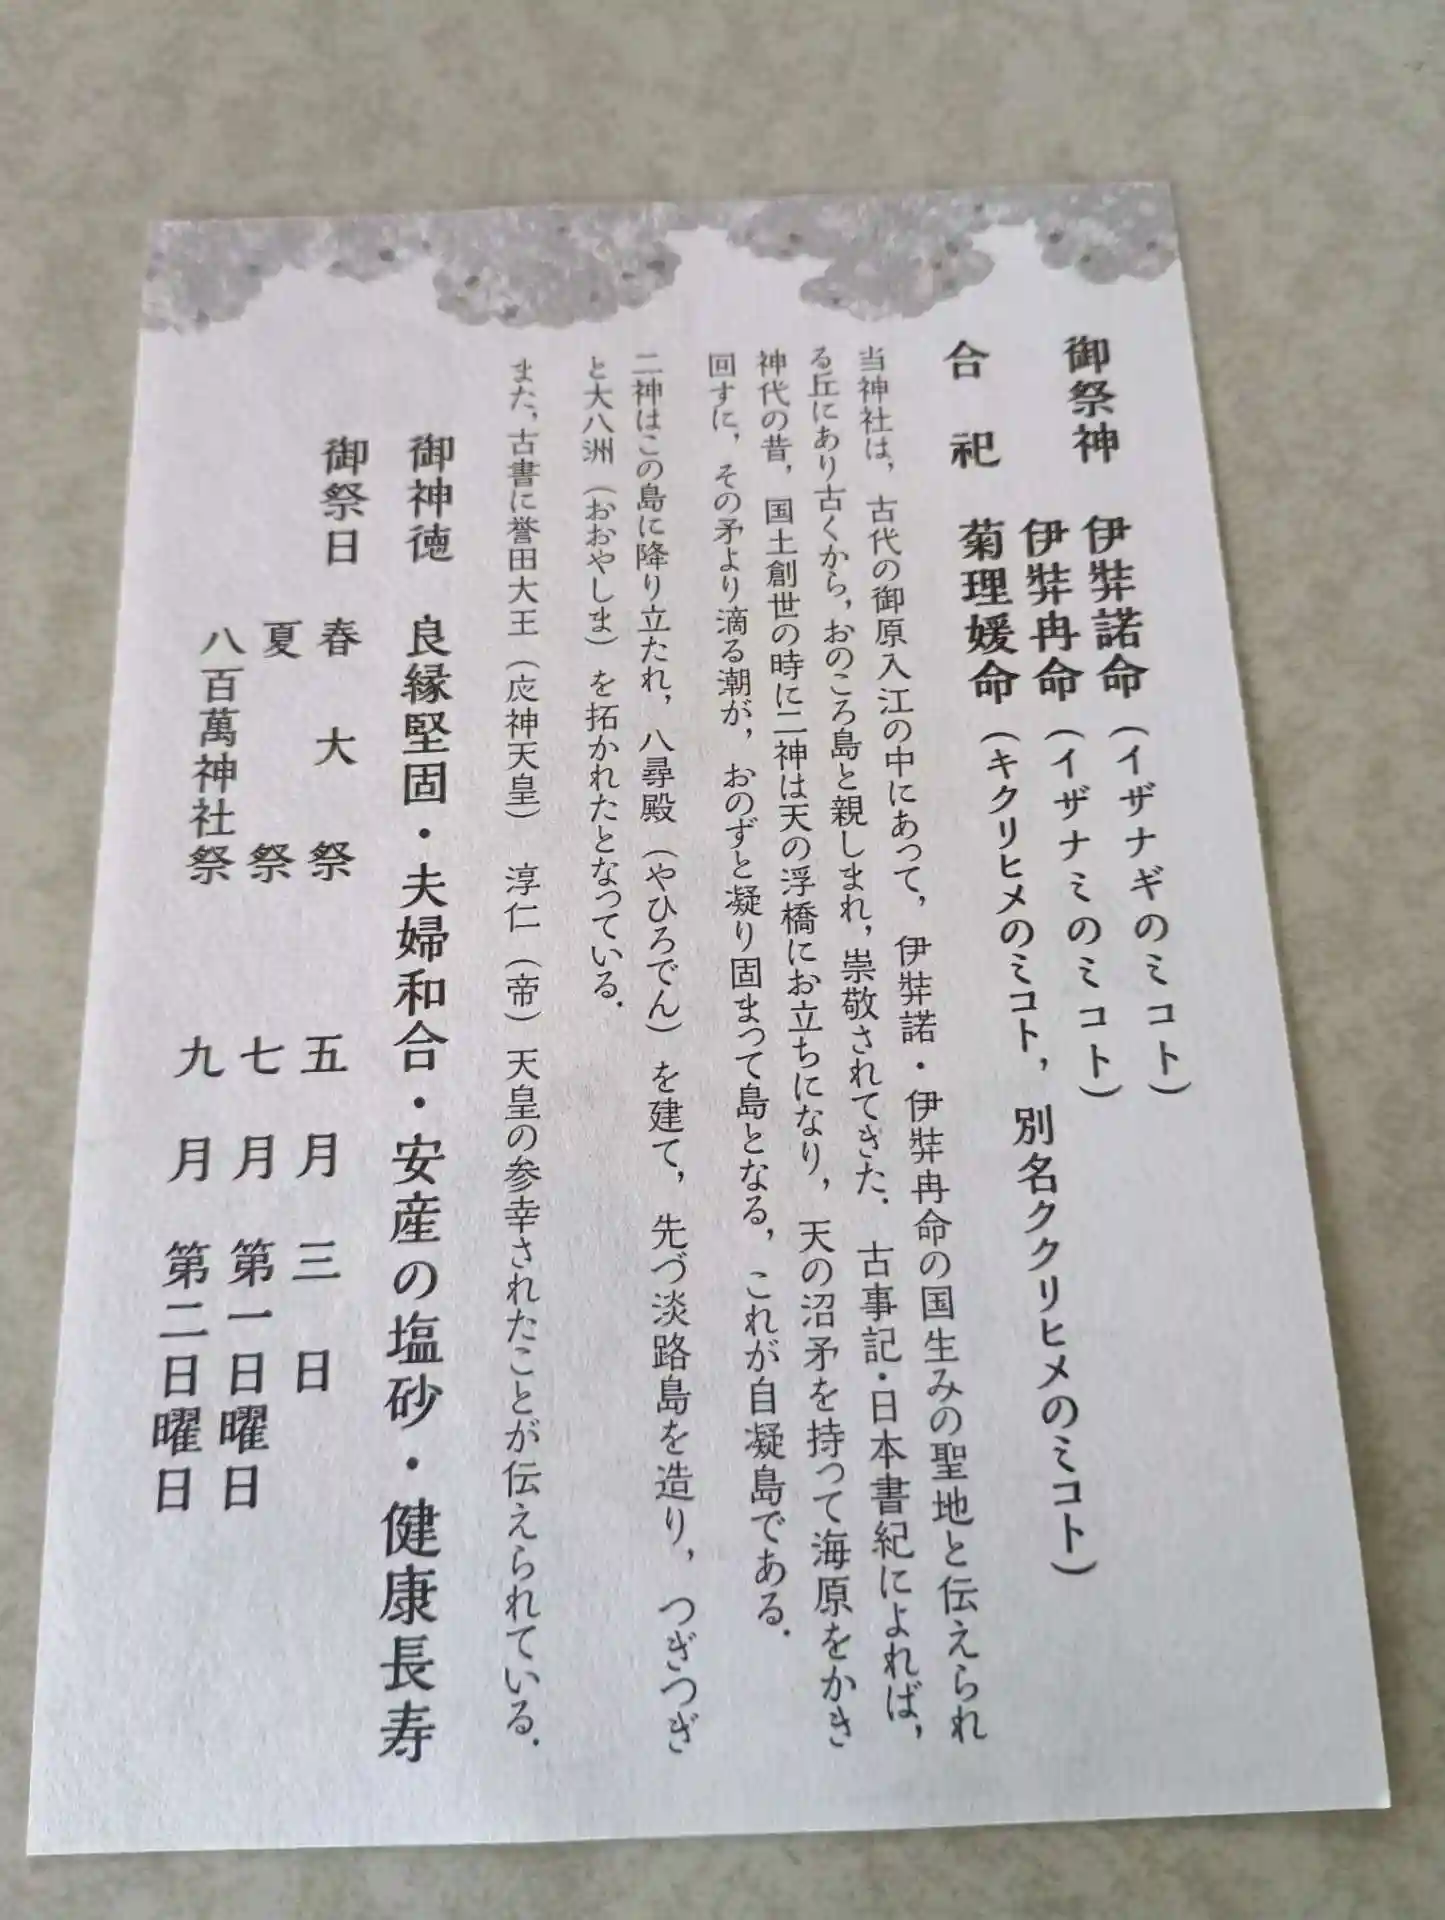 御祭神 伊弉諾命(イザナギのミコト)
伊弉冉命(イザナミのミコト)
合祀 菊理媛命(キクリヒメのミコト,別名ククリヒメのミコト)
当神社は,古代の御原入江の中にあって,伊弉諾・伊弉冉命の国生みの聖地と伝えられ
る丘にあり古くから,おのころ島と親しまれ,崇敬されてきた.古事記・日本書紀によれば,
神代の昔,国土創世の時に二神は天の浮橋にお立ちになり,天の沼矛を持って海原をかき
回すに,その矛より滴る潮が,おのずと凝り固まって島となる,これが自凝島である.
二神はこの島に降り立たれ,八尋殿(やひろでん)を建て,先づ淡路島を造り,つぎつぎ
と大八洲(おおやしま)を拓かれたとなっている.
また,古書に誉田大王(応神天皇) 淳仁(帝)天皇の参幸されたことが伝えられている.
御神徳 良縁堅固・夫婦和合・安産の塩砂・健康長寿
御祭日 春大祭 五月三日
夏祭 七月第一日曜日
八百萬神社祭 九月第二日曜日